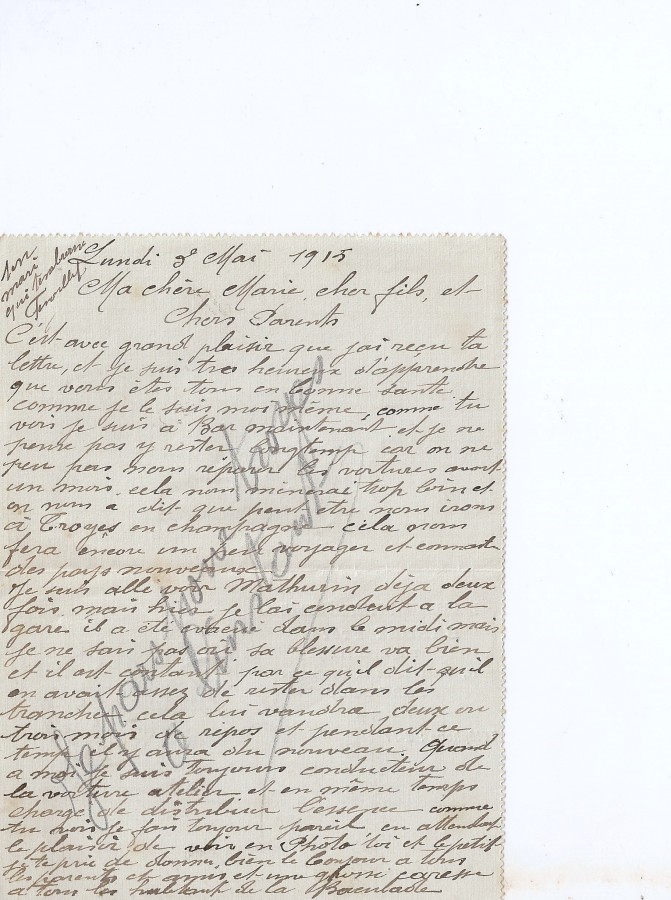 ton
mari
qui
Lundi 3 Mai 1915
Ma chère Marie, cher fils, et
Chers Parents
C'est avec grand plaisir que j'ai reçu ta
lettre, et je suis tres heureux d'apprendre
que vous êtes tous en bonne santé
comme je le suis moi même, comme tu
vois je suis à Bar maintenant et je ne
pense pas y rester longtemp car on ne
peu pas nous réparer les voitures avant
un mois. cela nous mènerai trop loin et
on nous a dit que peut être nous irons
à Troyes en champagne cela nous
fera encore un peu voyager et connaitre
des pays nouveaux
Je suis allé voir Mathurin déja deux
fois mais hier je l'ai conduit a la
gare il a été évacué dans le midi mais
je ne sais pas où sa blessure va bien
et il est contant par ce qu'il dit qu'il
en avait assez de rester dans les
tranchées cela lui vaudra deux ou
trois mois de repos et pendant ce
temps il y aura du nouveau. Quand
a moi je suis toujours conducteur de
la voiture atelier et en même temps
chargé de distribuer l'essence comme
tu vois je suis toujour pareil en attendant
le plaisir de voir en Photo toi et le petit
je te prie de donner bien le bonjour a tous
les parents et amis et une grosse caresse
a tous les habitant de la